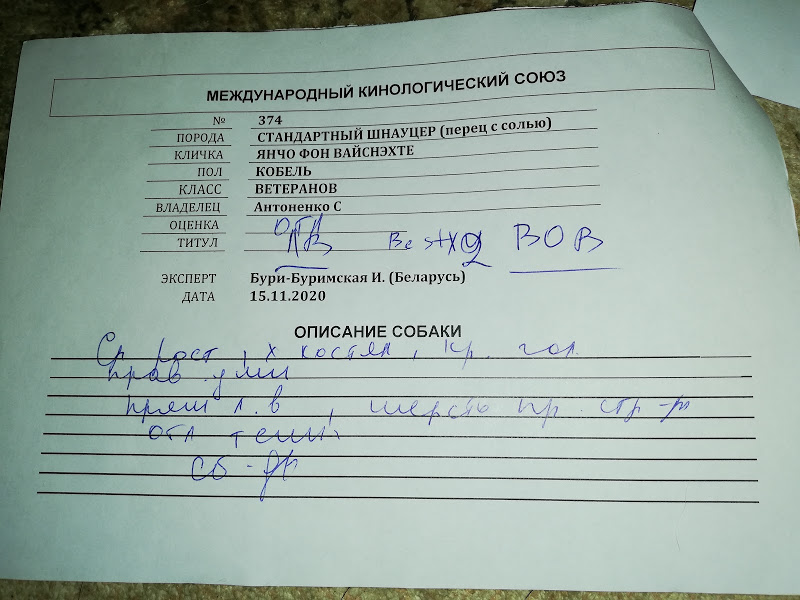 МЕЖДУНАРОДНЫЙ КИНОЛОГИЧЕСКИЙ СОЮЗ
№ 374
ПОРОДА СТАНДАРТНЫЙ ШНАУЦЕР (перец с солью)
КЛИЧКА ЯНЧО ФОН ВАЙСНЭХТЕ
ПОЛ КОБЕЛЬ
КЛАСС ВЕТЕРАНОВ
ВЛАДЕЛЕЦ Антоненко С
ОЦЕНКА отл
ТИТУЛ ЛВ BOB
ЭКСПЕРТ Бури-Буримская И. (Беларусь)
ДАТА 15.11.2020
ОПИСАНИЕ СОБАКИ
Ср рост, х костяк, кр. гол.
прав.
прям л. в, шерсть пр. стр-ры
отл темп